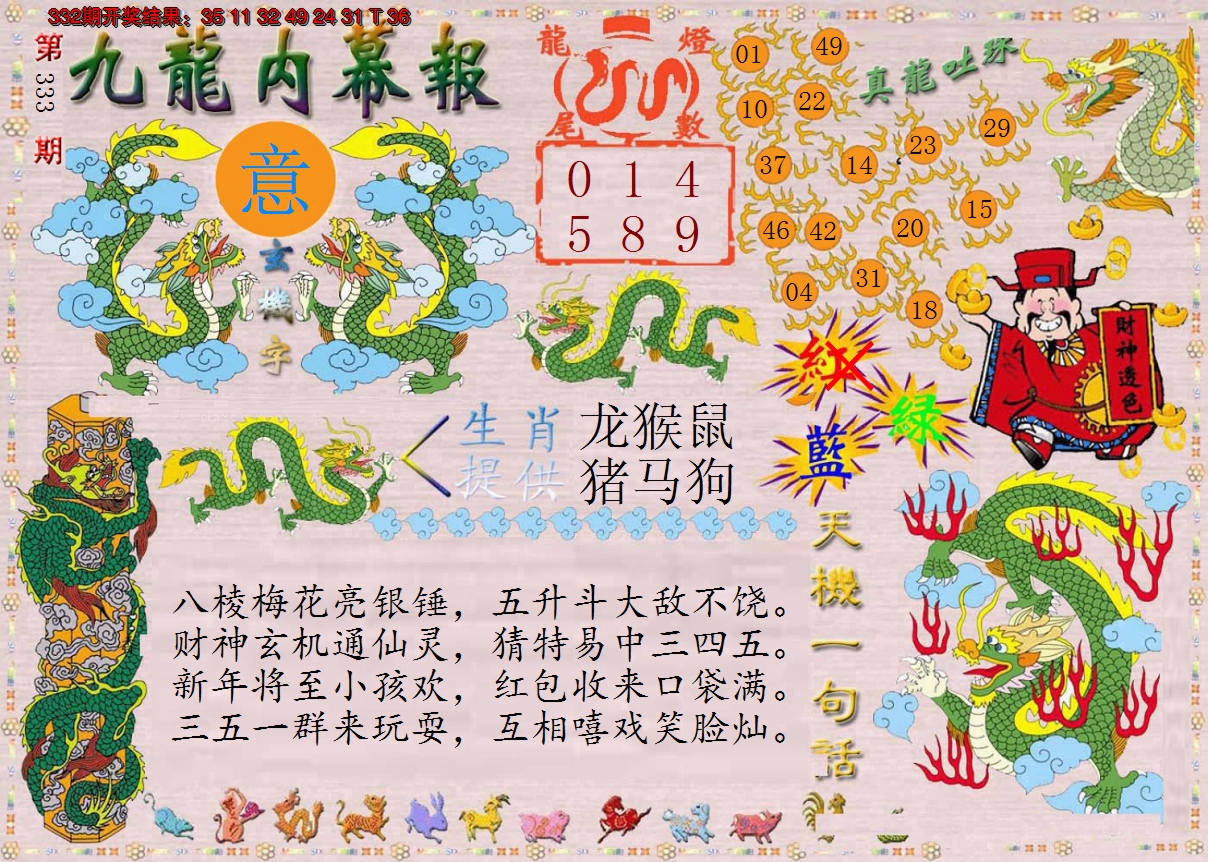 332期开奖结果：35 11 32 49 24 31 T 36
第333期
九龍内幕報
意
玄機字
龍燈
尾數
0 1 4
5 8 9
真龍吐珠
01 49
10 22
37 14 23 29
46 42 20 15
04 31 18
財神透色
紅
綠
藍
生肖 龙猴鼠
提供 猪马狗
天機一句話
八棱梅花亮银锤，五升斗大敌不饶。
财神玄机通仙灵，猜特易中三四五。
新年将至小孩欢，红包收来口袋满。
三五一群来玩耍，互相嘻戏笑脸灿。